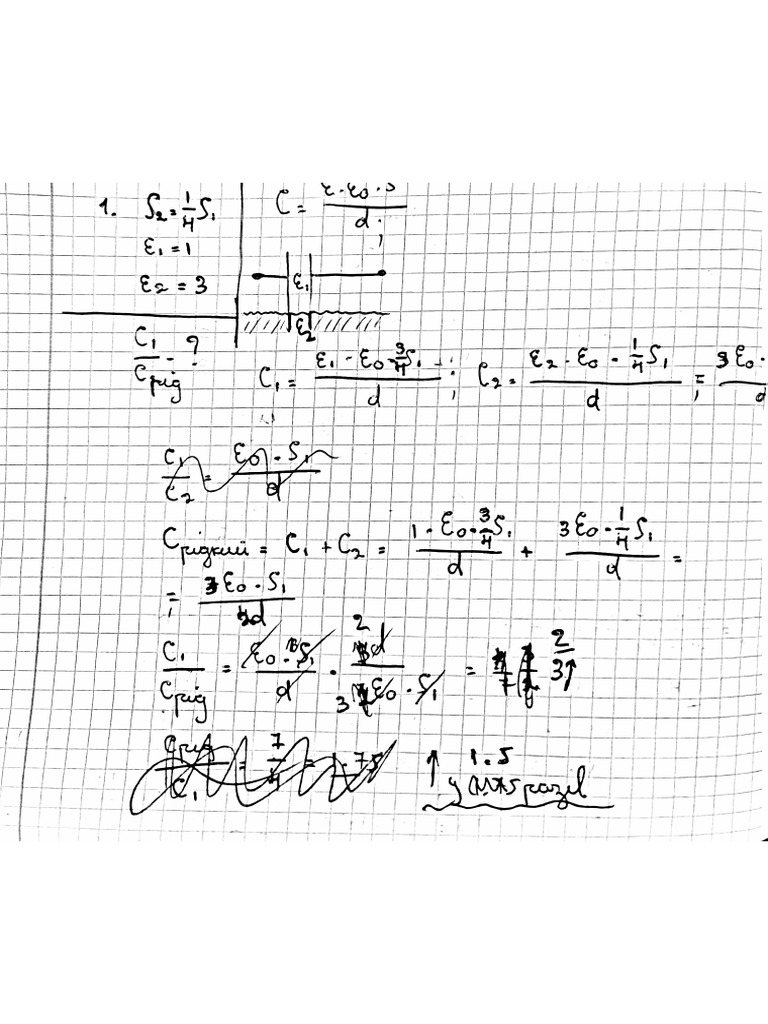 1. S₂ = 1/4 S₁
ε₁ = 1
ε₂ = 3
C₁/Cрід - ?
C = ε·ε₀·S/d ;
ε₁
ε₂
C₁ = ε₁ · ε₀ · 3/4 S₁/d ; C₂ = ε₂ · ε₀ · 1/4 S₁/d ; = 3ε₀ ·/d
C₁/C₂ = ε₀ · S₁/d
Cрідкий = C₁ + C₂ = 1 · ε₀ · 3/4 S₁/d + 3ε₀ · 1/4 S₁/d =
= 3ε₀ · S₁/2d
C₁/Cрід = ε₀ · S₁/d · 2d/3ε₀ · S₁ = 2/3 ↑
Cрід/C₁ = 7/4 = 1.75
↑ 1.5
у разів